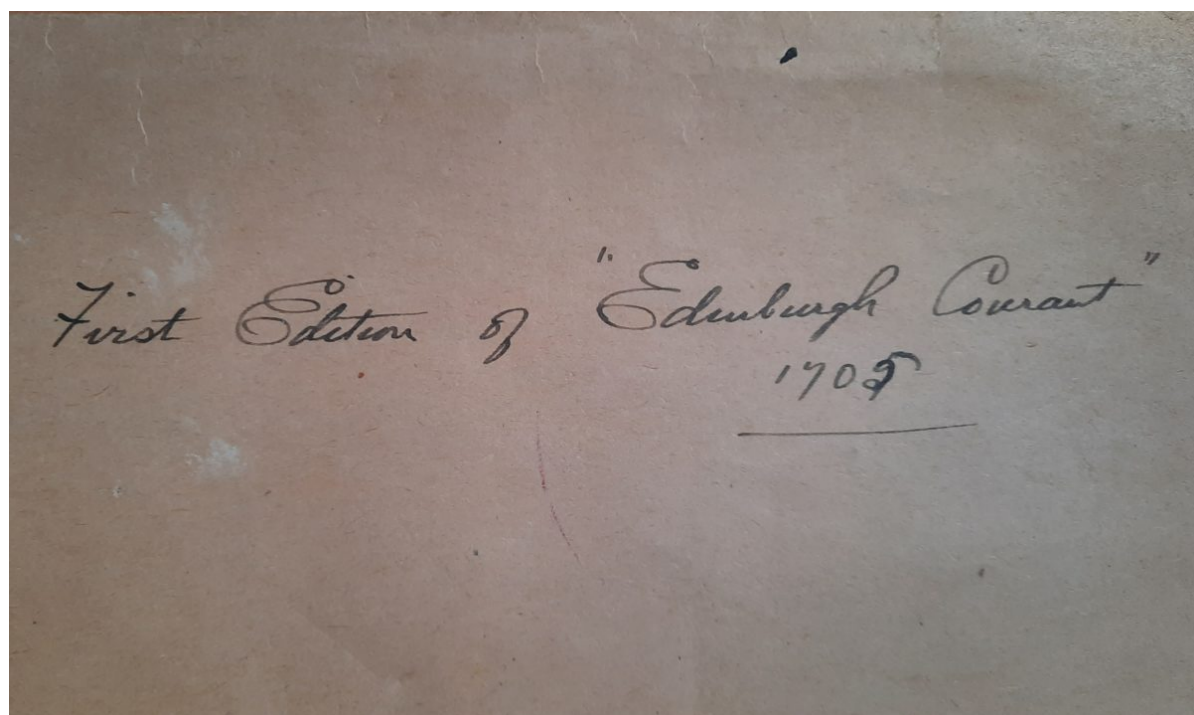 First Edition of "Edinburgh Courant"
1705